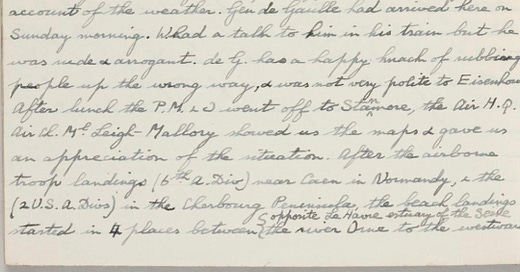 account of the weather. Gen de Gaulle had arrived here on
Sunday morning. W had a talk to him in his train but he
was rude & arrogant. de G. has a happy knack of rubbing
people up the wrong way, & was not very polite to Eisenhow
After lunch the P.M. & I went off to Stanmore, the Air H.Q.
Air Ch. Ml Leigh-Mallory showed us the maps & gave us
an appreciation of the situation. After the airborne
troop landings (6th A. Div) near Caen in Normandy, & the
(2 U.S. A. Divs) in the Cherbourg Peninsula, the beach landings
opposite Le Havre estuary of the Seine
started in 4 places between the river Orne to the westward